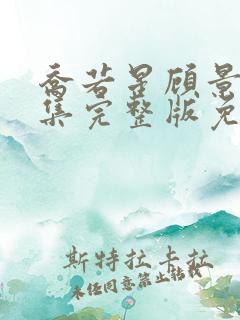 乔若星顾景
集完整版免
斯特拉卡拉
未经同意禁止转载